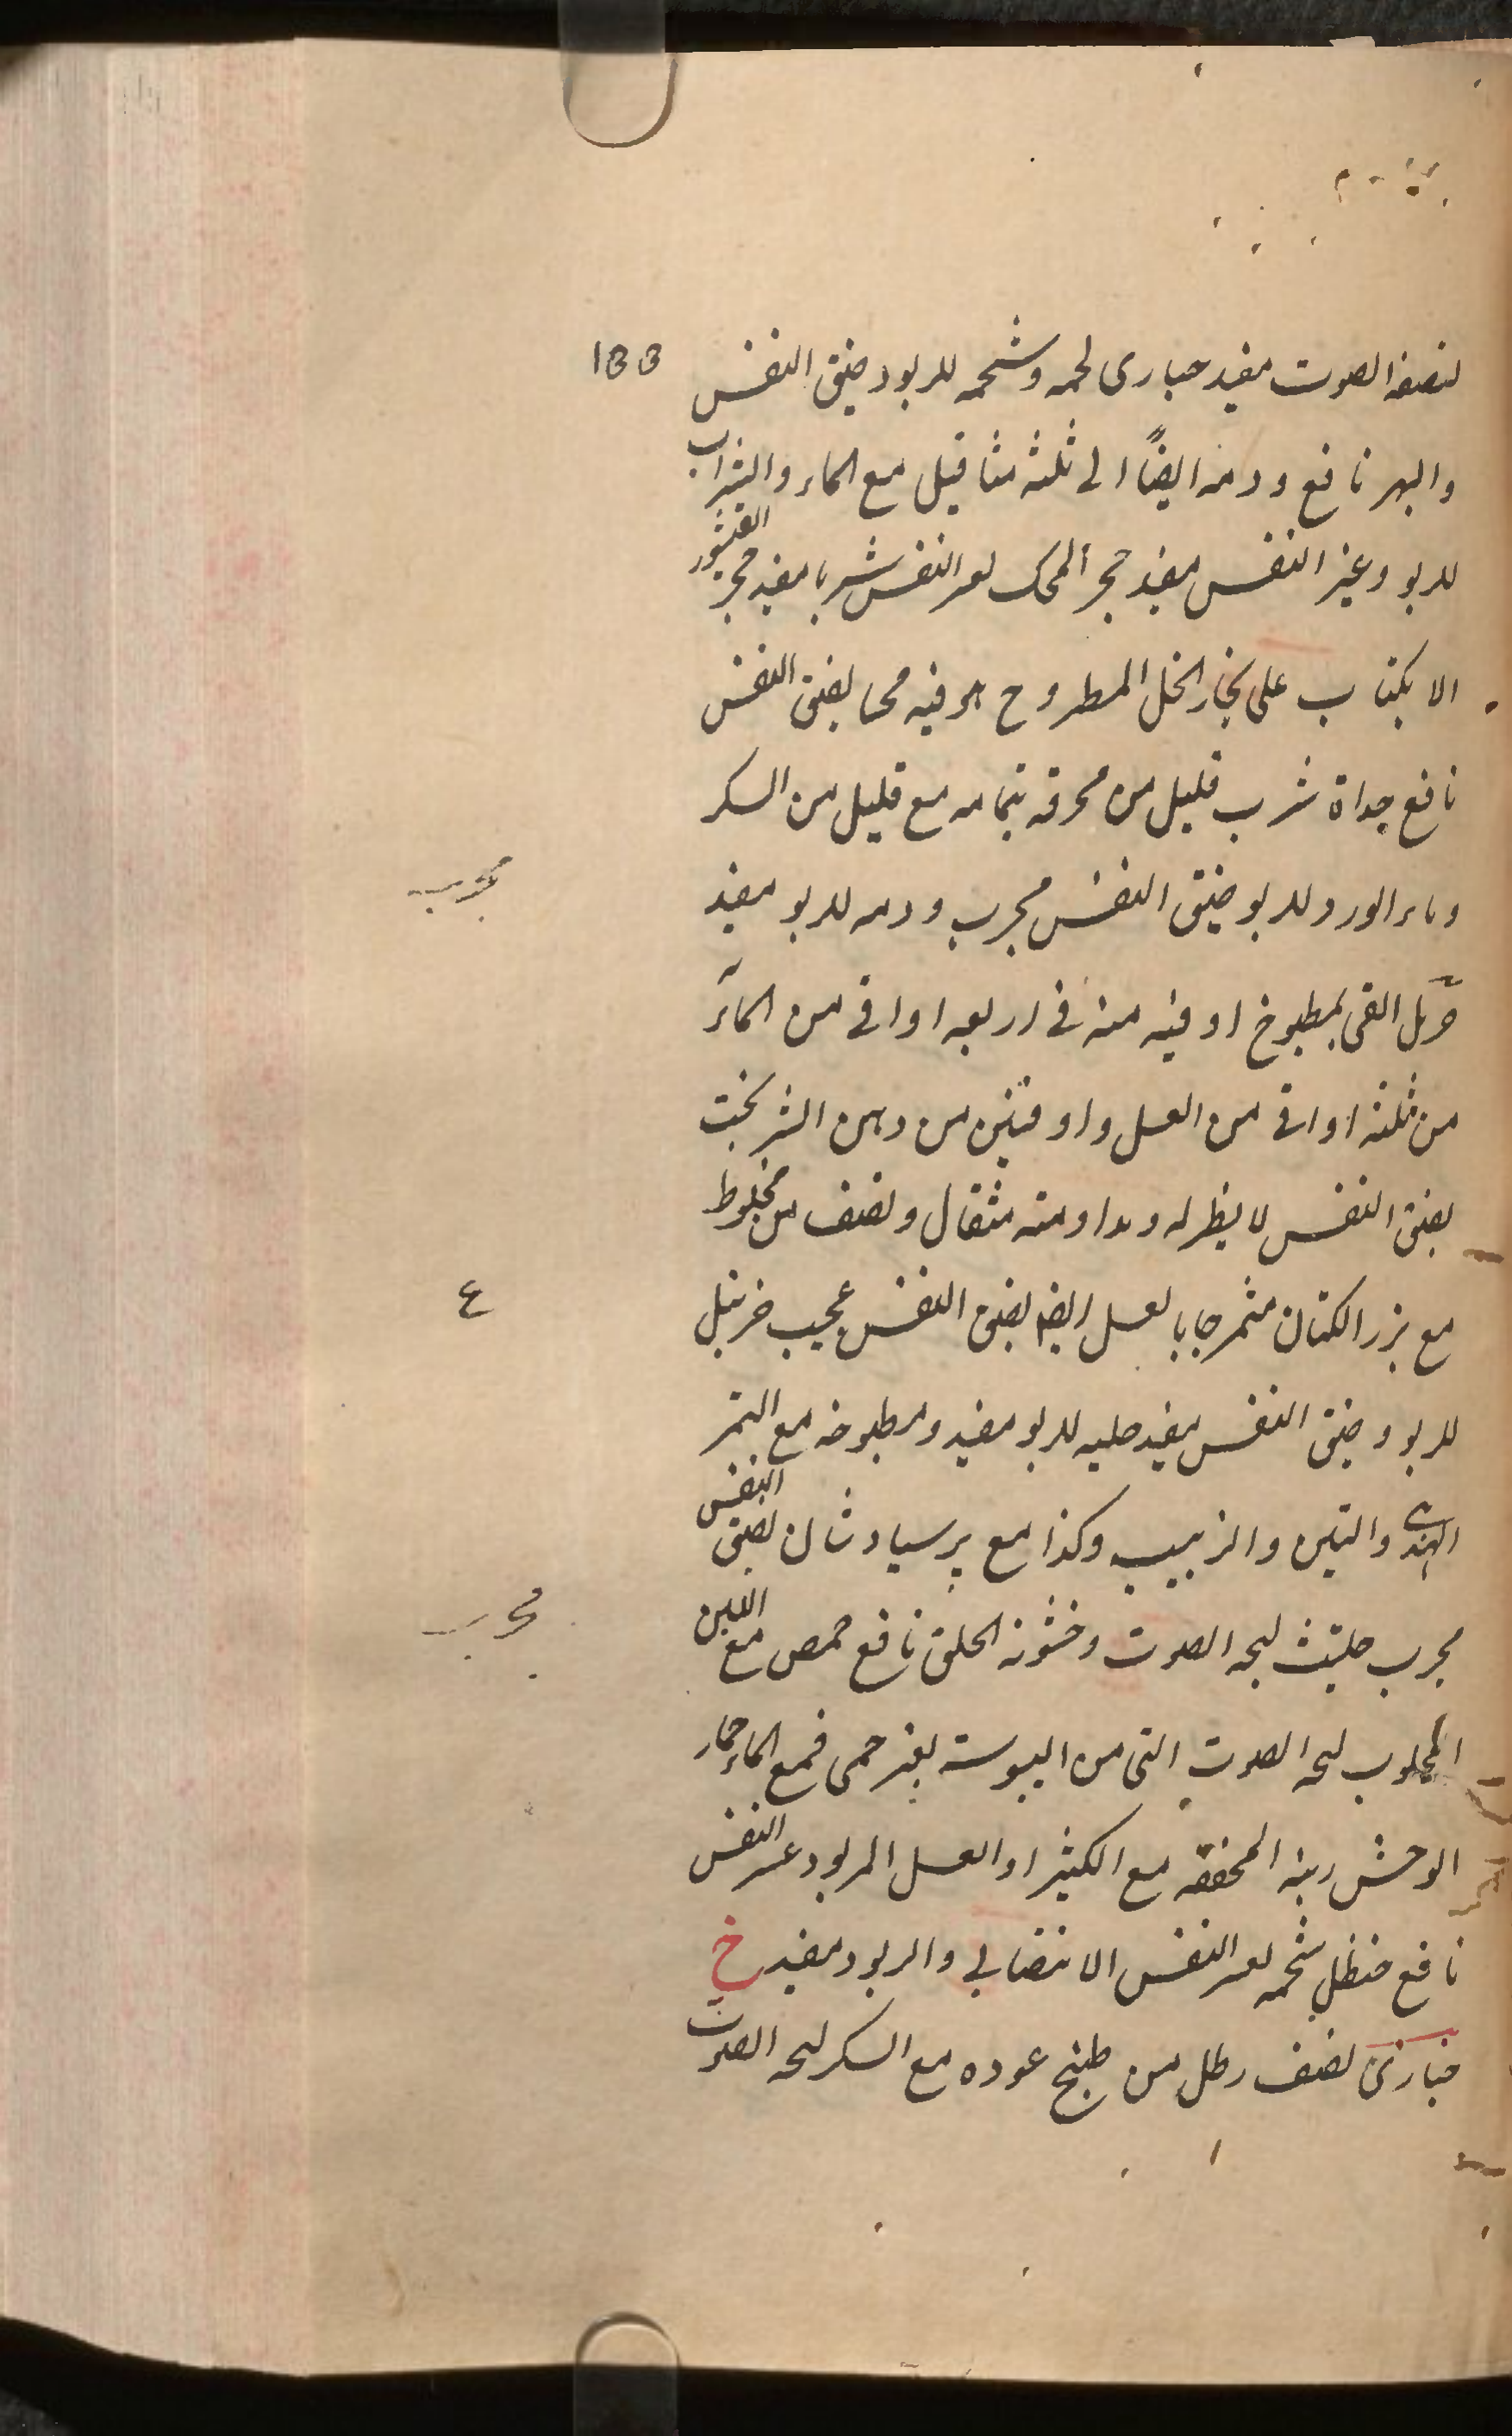 133
لتصفية الصوت مفيد حبارى لحمه وشحمه للربو وضيق النفس
والبهر نافع ودمه ايضًا الى ثلثة مثاقيل مع الماء والشراب
للربو وعسر النفس مفيد حجر المحك لعسر النفس شربا مفيد حجر القيشور
الانكباب على بخار الخل المطروح هو فيه محا لضيق النفس
نافع حداة شرب قليل من محرقه بتمامه مع قليل من السكر
وماء الورد للربو ضيق النفس مجرب ودمه للربو مفيد
مجرب
القى بمطبوخ اوقيه منه فى اربعه اواقى من الماء
من ثلثة اواقى من العسل واوقيتين من دهن الشيربخت
لضيق النفس لا نظير له ومداومته مثقال ونصف من مخلوط
مع بزر الكتان بالعسل ايضا لضيق النفس عجيب خربل
ع
للربو وضيق النفس مفيد حلبه للربو مفيد ومطبوخه مع التمر
الهندى والتين والزبيب وكذا مع پرسياوشان لضيق النفس
مجرب حلتيت لبحه الصوت وخشونة الحلق نافع حمص مع اللبن
مجرب
المحلوب لبحه الصوت التى من اليبوسة بغير حمى فمع الماء حمار
الوحش ريته المجففه مع الكثيرا والعسل للربو وعسر النفس
نافع حنظل شحمه لعسر النفس الانتصابى والربو ومفيد خ
خبازى نصف رطل من طبيخ عوده مع السكر لبحه الصوت